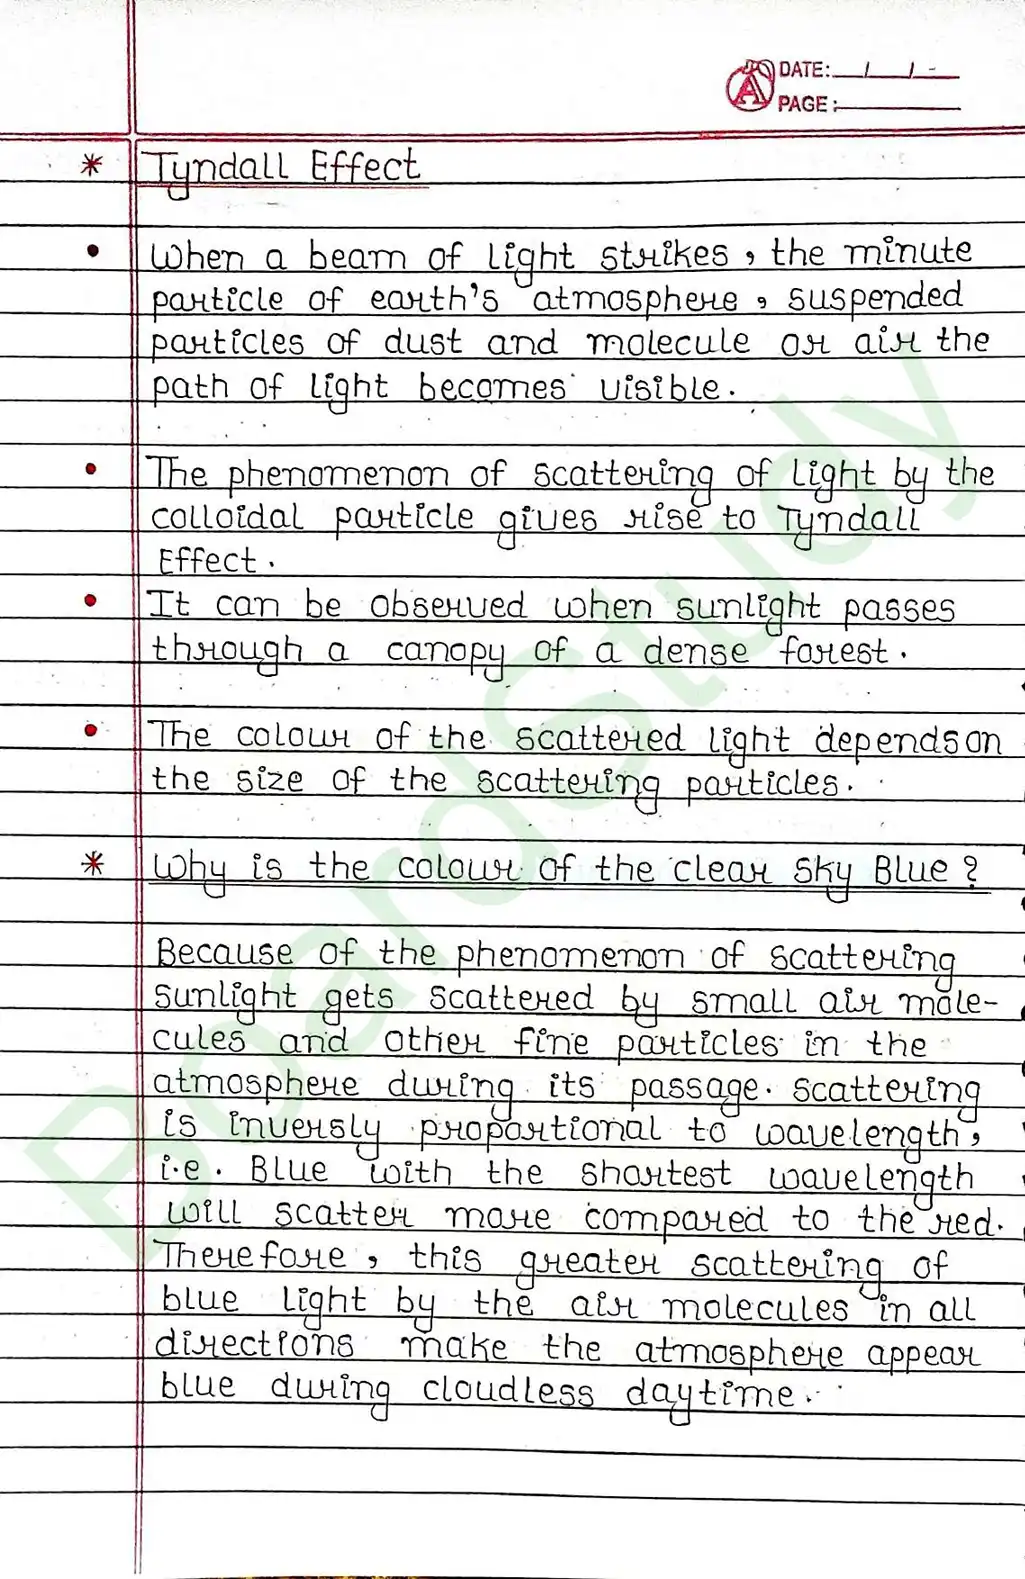 DATE: / / -
PAGE:
* Tyndall Effect
• When a beam of light strikes, the minute
particle of earth's atmosphere, suspended
particles of dust and molecule or air the
path of light becomes visible.
• The phenomenon of scattering of light by the
colloidal particle gives rise to Tyndall
Effect.
• It can be observed when sunlight passes
through a canopy of a dense forest.
• The colour of the scattered light depends on
the size of the scattering particles.
* Why is the colour of the clear Sky Blue?
Because of the phenomenon of scattering
sunlight gets scattered by small air mole-
cules and other fine particles in the
atmosphere during its passage. scattering
is inversly proportional to wavelength,
i.e. Blue with the shortest wavelength
will scatter more compared to the red.
Therefore, this greater scattering of
blue light by the air molecules in all
directions make the atmosphere appear
blue during cloudless daytime.
BoardStudy